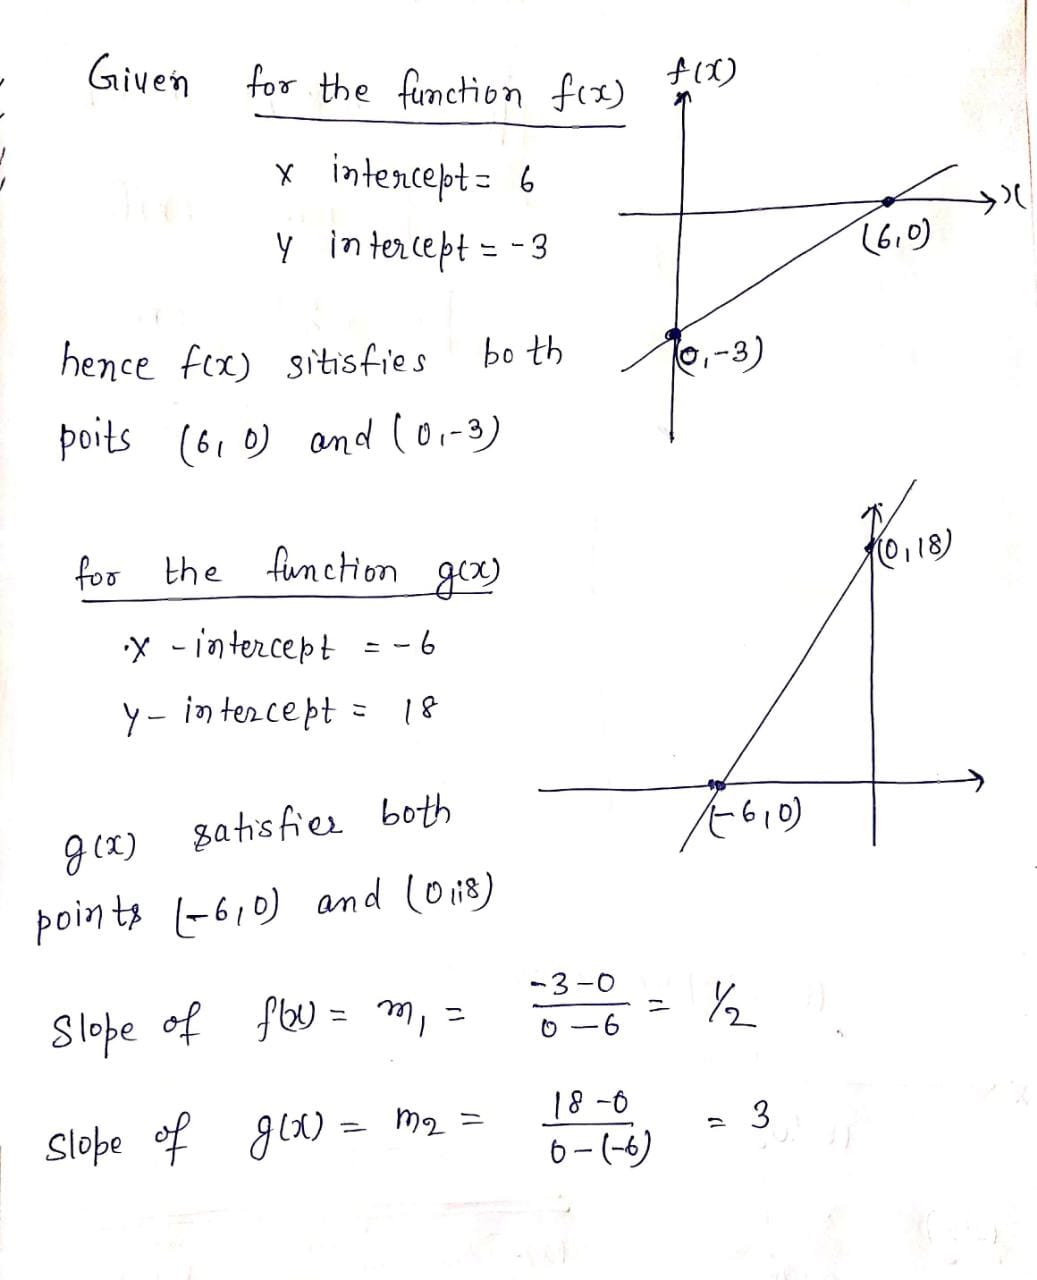 Given for the function f(x)
f(x)
x intercept = 6
x
y intercept = -3
(6,0)
hence f(x) sitisfies both
(0,-3)
poits (6,0) and (0,-3)
(0,18)
for the function g(x)
x - intercept = -6
y - intercept = 18
(-6,0)
g(x) satisfies both
points (-6,0) and (0,18)
Slope of f(x) = m₁ = (-3-0)/(0-6) = 1/2
Slope of g(x) = m₂ = (18-0)/(0-(-6)) = 3